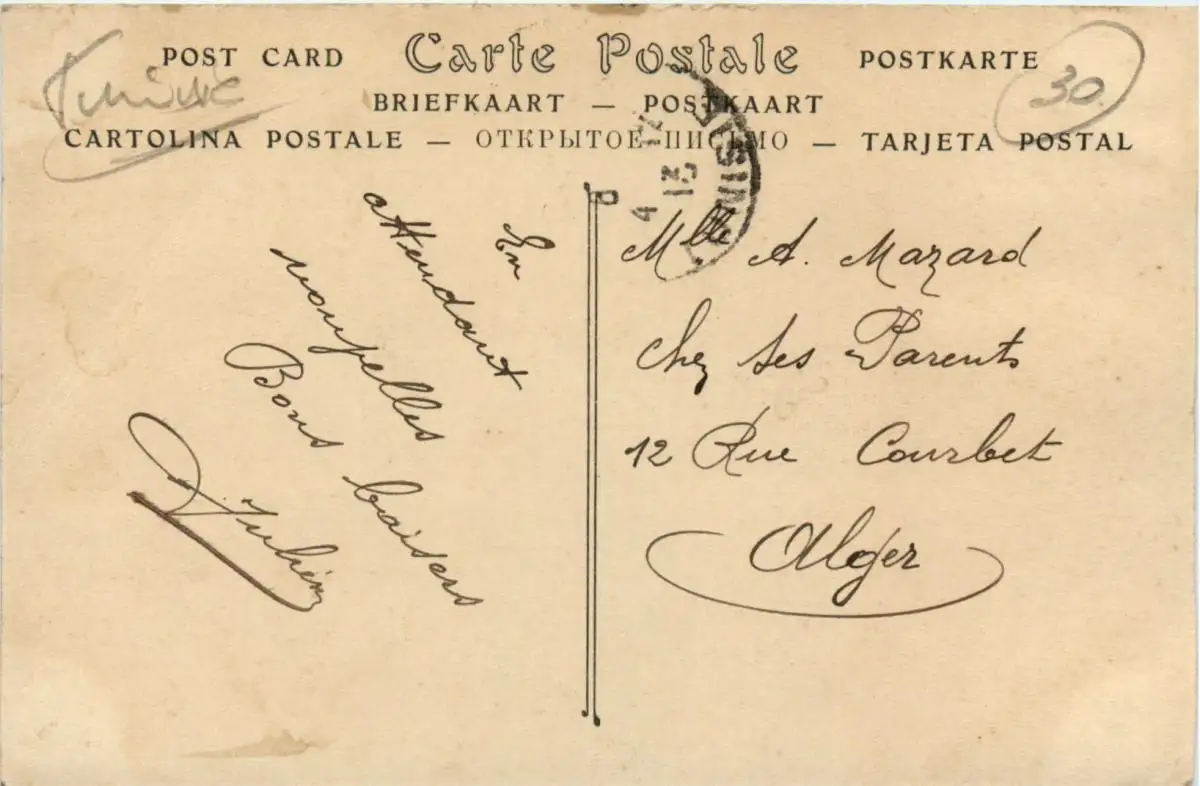 POST CARD Carte Postale POSTKARTE
BRIEFKAART — POSTKAART
CARTOLINA POSTALE — ОТКРЫТОЕ ПИСЬМО — TARJETA POSTAL
Tunisie
30
4 12
13
En
attendant
nouvelles
Bons baisers
Julien
Mlle A. Mazard
chez ses Parents
12 Rue Courbet
Alger